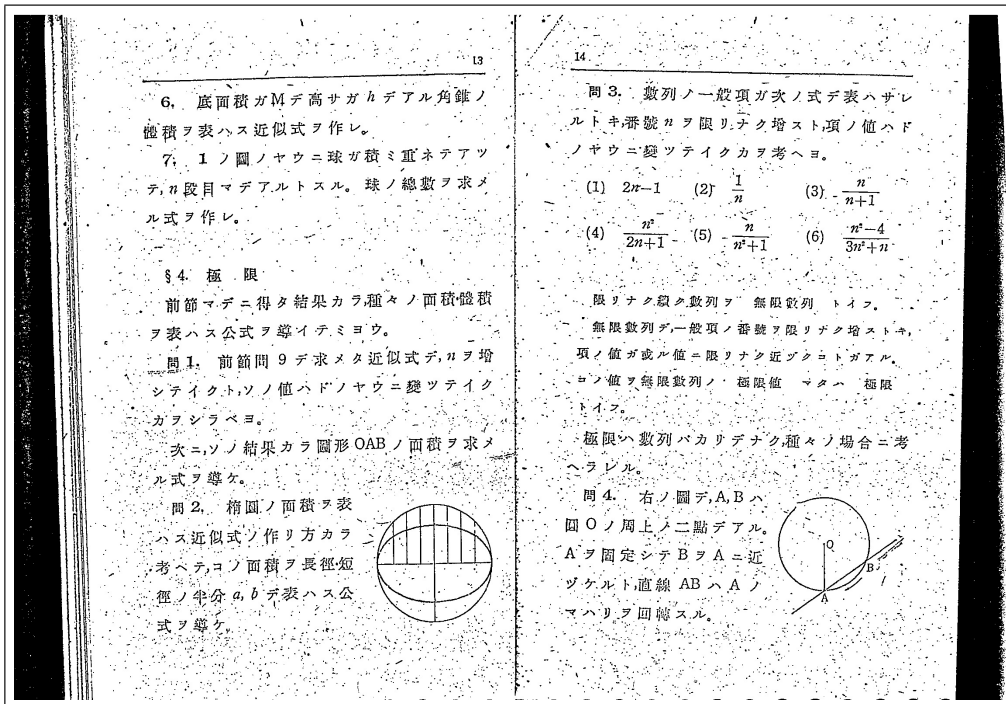 13
6. 底面積ガMデ高サガhデアル角錐ノ
體積ヲ表ハス近似式ヲ作レ。
7. 1ノ圖ノヤウニ球ガ積ミ重ネテアツ
テ,n段目マデアルトスル。球ノ總數ヲ求メ
ル式ヲ作レ。
§4. 極限
前節マデニ得タ結果カラ,種々ノ面積體積
ヲ表ハス公式ヲ導イテミヨウ。
問1. 前節問9デ求メタ近似式デ,nヲ增
シテイクト,ソノ値ハドノヤウニ變ツテイク
カヲシラベヨ。
次ニ,ソノ結果カラ圖形OABノ面積ヲ求メ
ル式ヲ導ケ。
問2. 楕圓ノ面積ヲ表
ハス近似式ノ作リ方カラ
考ヘテ,コノ面積ヲ長徑,短
徑ノ半分a,bデ表ハス公
式ヲ導ケ。
14
問3. 數列ノ一般項ガ次ノ式デ表ハサレ
ルトキ,番號nヲ限リナク增スト,項ノ値ハド
ノヤウニ變ツテイクカヲ考ヘヨ。
(1) 2n−1 (2) 1/n (3) n/(n+1)
(4) n²/(2n+1) (5) n/(n²+1) (6) (n²−4)/(3n²+n)
限リナク續ク數列ヲ 無限數列 トイフ。
無限數列デ,一般項ノ番號ヲ限リナク增ストキ,
項ノ値ガ或ル値ニ限リナク近ヅクコトガアル。
コノ値ヲ無限數列ノ 極限値 マタハ 極限
トイフ。
極限ハ數列バカリデナク,種々ノ場合ニ考
ヘラレル。
問4. 右ノ圖デ,A,Bハ
圓Oノ周上ノ二點デアル。
Aヲ固定シテBヲAニ近
ヅケルト,直線ABハAノ
マハリヲ回轉スル。
O
B
A